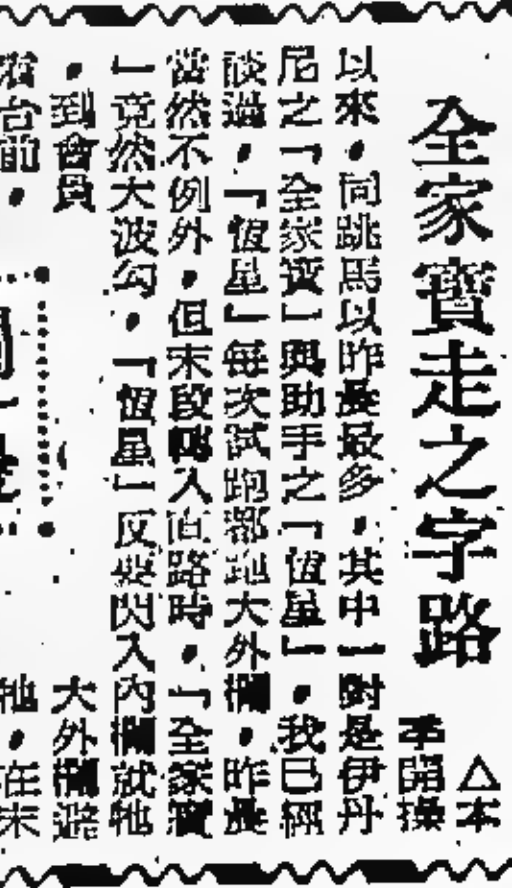 全家寶走之字路
△本
季開操
以來，同跳馬以昨晨最多，其中一對是伊丹
尼之「全家寶」與助手之「恆星」，我已經
談過，「恆星」每次試跑都跑大外欄，昨晨
當然不例外，但末段轉入直路時，「全家寶
」竟然大波勾，「恆星」反要閃入內欄就牠
，到會員
大外欄避
前，
牠，在末